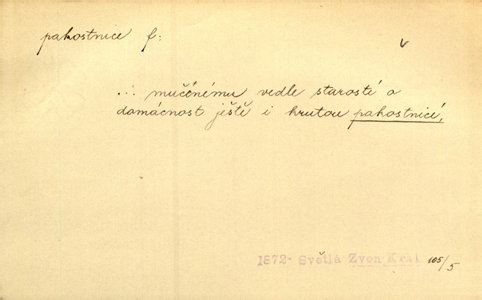 pakostnice f:
v
... mučenému vedle starostí o
domácnost ještě i krutou pakostnicí,
1872 - Světlá Zvon Král 105/5